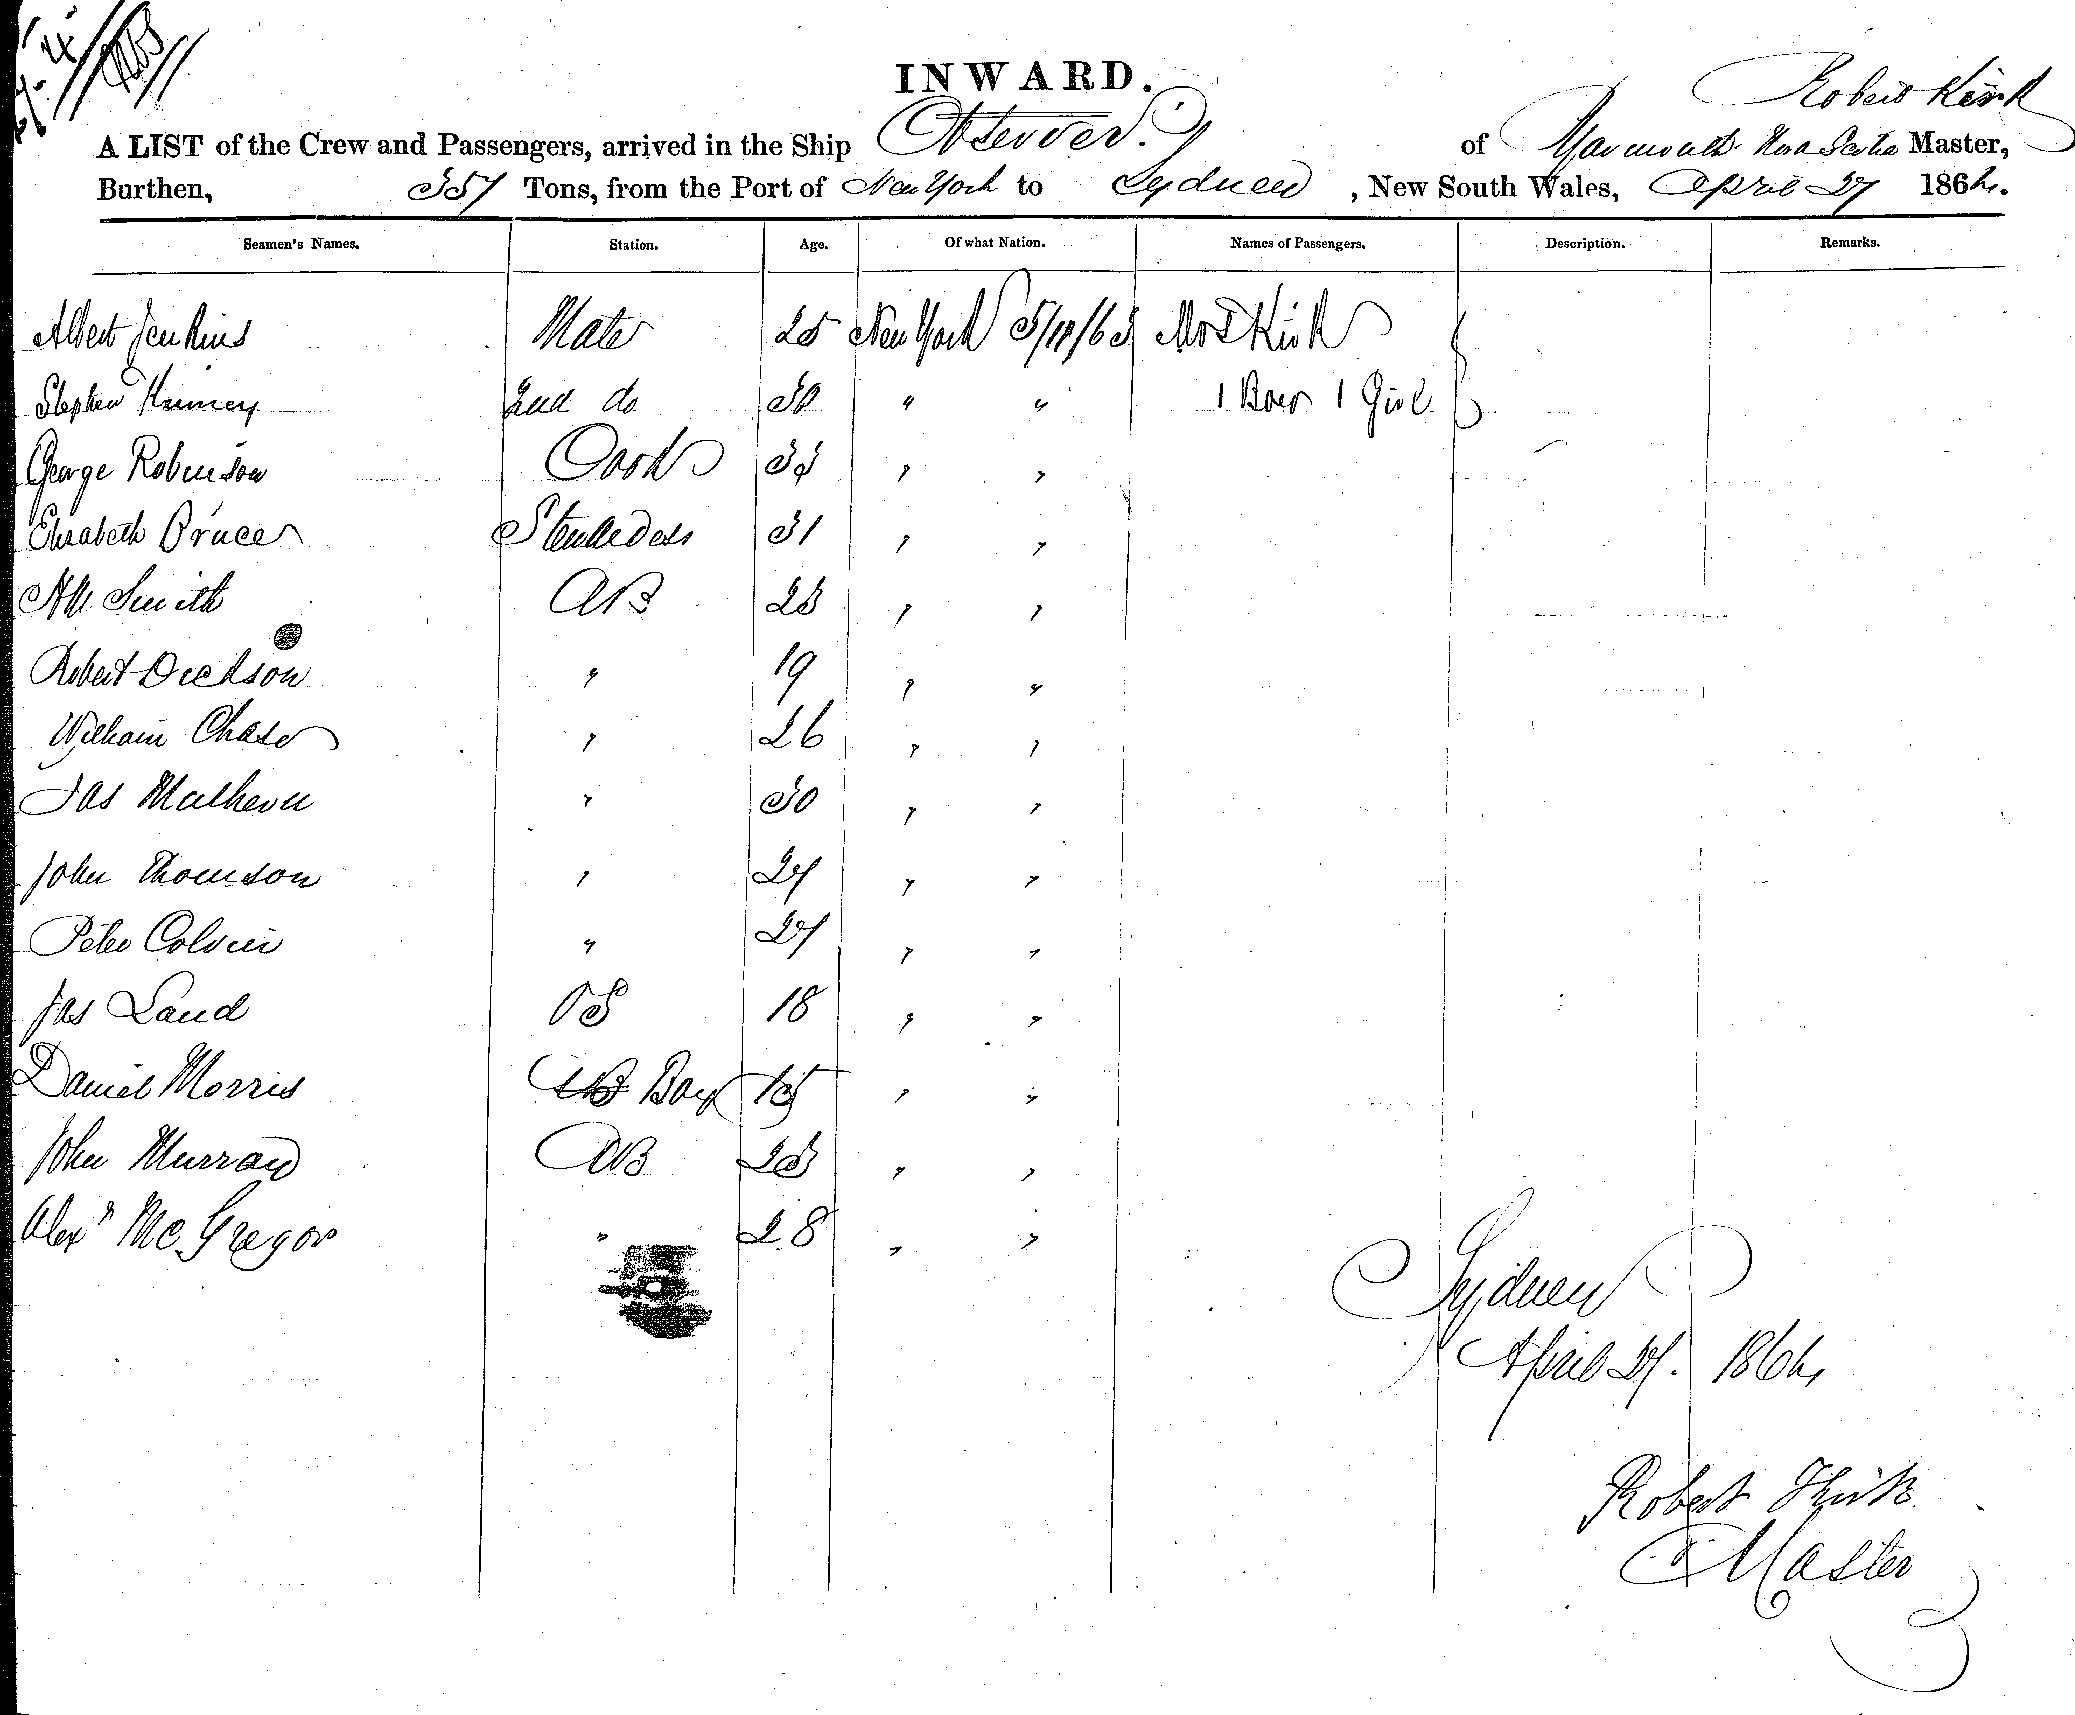 INWARD.
Robert Kirk
A LIST of the Crew and Passengers, arrived in the Ship Observer. of Yarmouth Nova Scotia Master,
Burthen, 357 Tons, from the Port of New York to Sydney , New South Wales, April 27 1864.
Seamen's Names. Station. Age. Of what Nation. Names of Passengers. Description. Remarks.
Albert Jenkins Mate 25 New York Mrs Kirk
Stephen Kinney 2nd do 30 " " 1 Boy 1 Girl
George Robinson Cook " "
Elizabeth Bruce Stewardess 31 " "
Smith AB 23 " "
Robert Dickson " 19 " "
William Chase " 26 " "
Jas Mathew " 30 " "
John Thomson " 27 " "
Peter Colvin " 27 " "
Jas Land OS 18 " "
Daniel Morris AB Boy 15 " "
John Murray AB 23 " "
Alexr McGregor " 28 " "
Sydney
April 27. 1864
Robert Kirk
Master